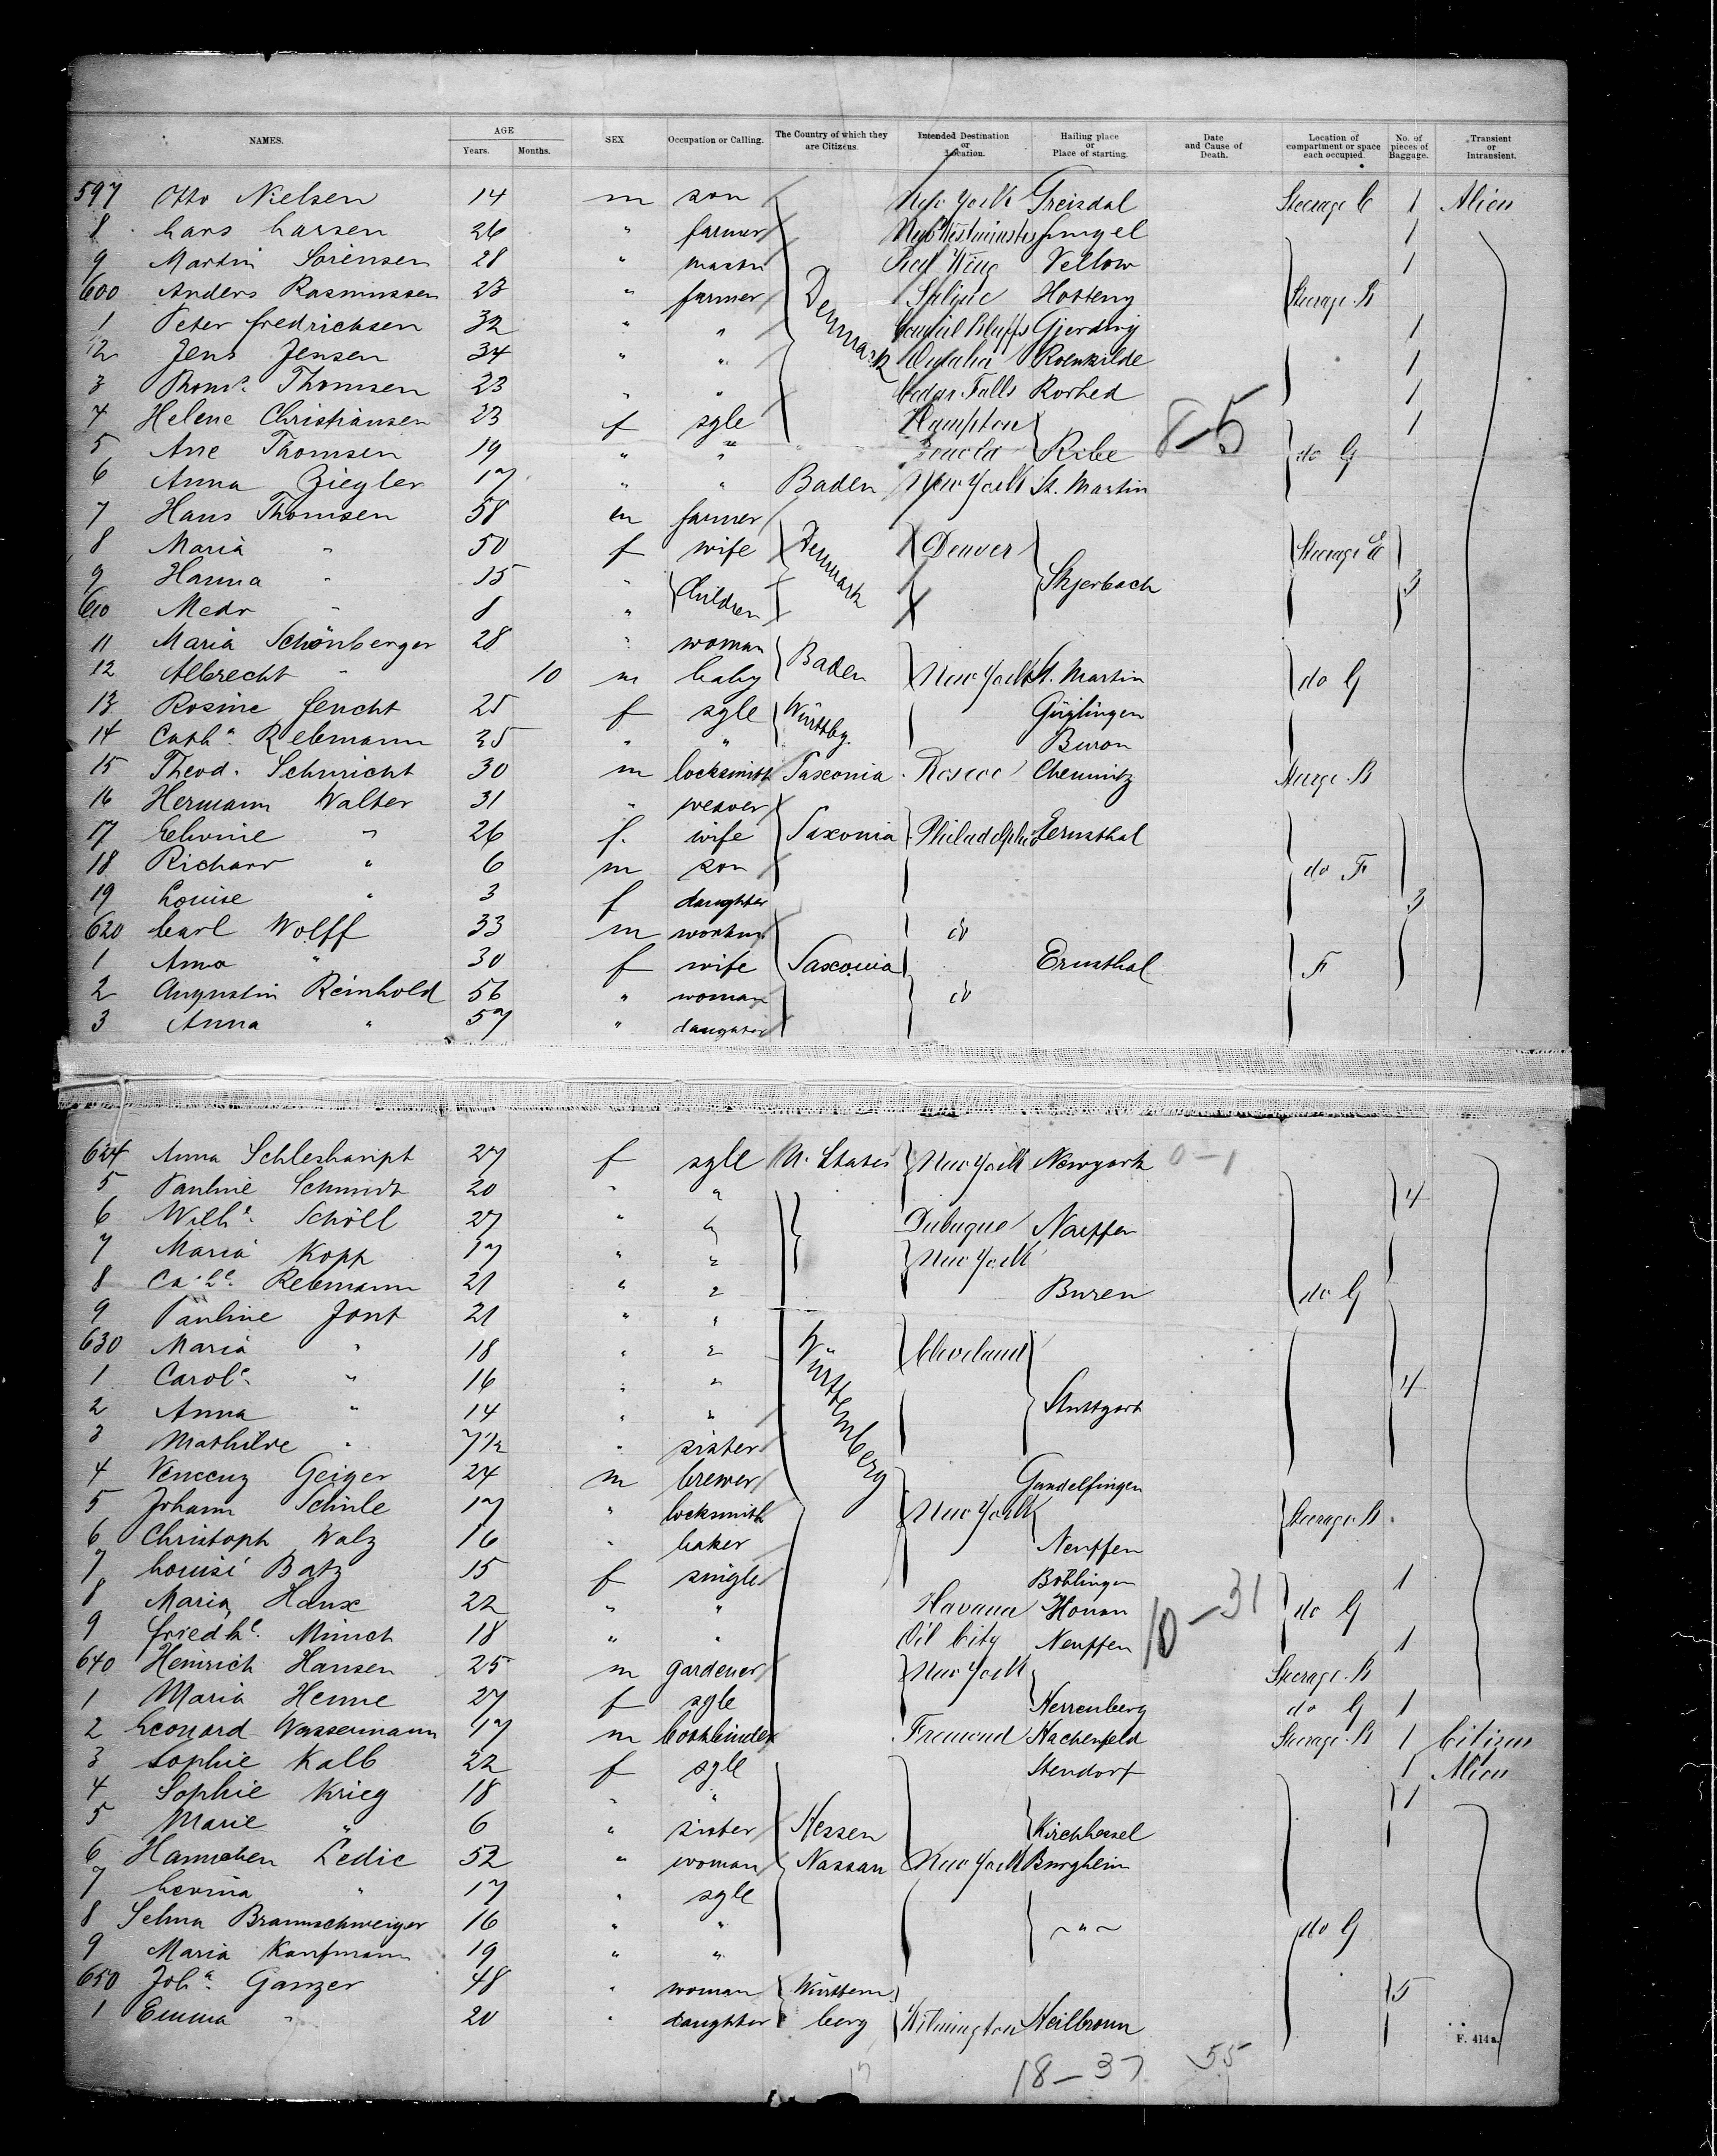 NAMES. AGE Years. Months. SEX Occupation or Calling. The Country of which they are Citizens. Intended Destination or Location. Hailing place or Place of starting. Date and Cause of Death. Location of compartment or space each occupied. No. of pieces of Baggage. Transient or Intransient.
597 Otto Nielsen 14 m son New York Greisdal Steerage C 1 Alien
8 Lars Larsen 26 " farmer 1
9 Martin Sörensen 28 " mason Red Wing Vellow 1
600 Anders Rasmussen 23 " farmer Denmark Hotteny Steerage B
1 Peter Fredrichsen 32 " " Council Bluffs Gjerding 1
2 Jens Jensen 34 " " Omaha Roenkilde 1
3 Thoms. Thomsen 23 " " Cedar Falls Rorhed 1
4 Helene Christiansen 23 f sgle Hampton 1
5 Ane Thomsen 19 " " Ribe 8-5 do G
6 Anna Ziegler 17 " " Baden New York St. Martin
7 Hans Thomsen 58 m farmer
8 Maria " 50 f wife Denmark Denver Steerage E
9 Hanna " 15 " Children Skjerbach 3
610 Medr " 8 "
11 Maria Schönberger 28 " woman Baden
12 Albrecht " 10 m baby New York St. Martin do G
13 Rosine Feucht 25 f sgle Württbg. Güglingen
14 Cath a. Rebmann 25 " " Buron
15 Theod. Schuricht 30 m locksmith Saxonia Roscoe Chemnitz Steerge B
16 Hermann Walter 31 " weaver
17 " 26 f. wife Saxonia Philadelphia Ernsthal
18 Richard " 6 m son do F
19 Louise " 3 f daughter 3
620 Carl Wolff 33 m workm. do
1 Anna " 30 f wife Saxonia Ernsthal F
2 Augustin Reinhold 56 " woman do
3 Anna " 57 " daughter
624 Anna 27 f sgle U. States New York Newyork 0-1
5 Pauline Schmidt 20 " " 4
6 Wilh e. Schöll 27 " " Dubuque Neuffen
7 Maria Kopp 17 " " New York
8 Rebmann 21 " " Buren do G
9 Pauline Jont 21 " "
630 Maria " 18 " " Württemberg Cleveland
1 Carol e. " 16 " " 4
2 Anna " 14 " " Stuttgart
3 Mathilde " 7½ " sister
4 Vencenz Geiger 24 m brewer Gundelfingen
5 Johann Schüle 17 " locksmith New York Steerage B
6 Christoph Walz 16 " baker Neuffen
7 Louise Batz 15 f single Böblingen 1
8 Maria Haux 22 " " Havana Honau 10-31 do G
9 Friedk e. Münch 18 " " Oil City Neuffen 1
640 Heinrich Hansen 25 m gardener New York Steerage B
1 Maria Henne 27 f sgle Herrenberg do G 1
2 Leonard Wassermann 47 m bookbinder Fremond Hachenfeld Steerage B 1 Citizen
3 Sophie Kalb 22 f sgle Stendorf 1 Alien
4 Sophie Krieg 18 " " 1
5 Marie " 6 " sister Hessen Kirchhasel
6 Hannchen Ledic 52 " woman Nassau New York Burghein
7 Levina " 17 " sgle
8 Selma Braunschweiger 16 " " ~"~ do G
9 Maria Kaufmann 19 " "
650 Joh a. Ganzer 48 " woman Württem 5
1 Emma " 20 " daughter berg Wilmington Heilbronn
F. 414a.
18-37 55